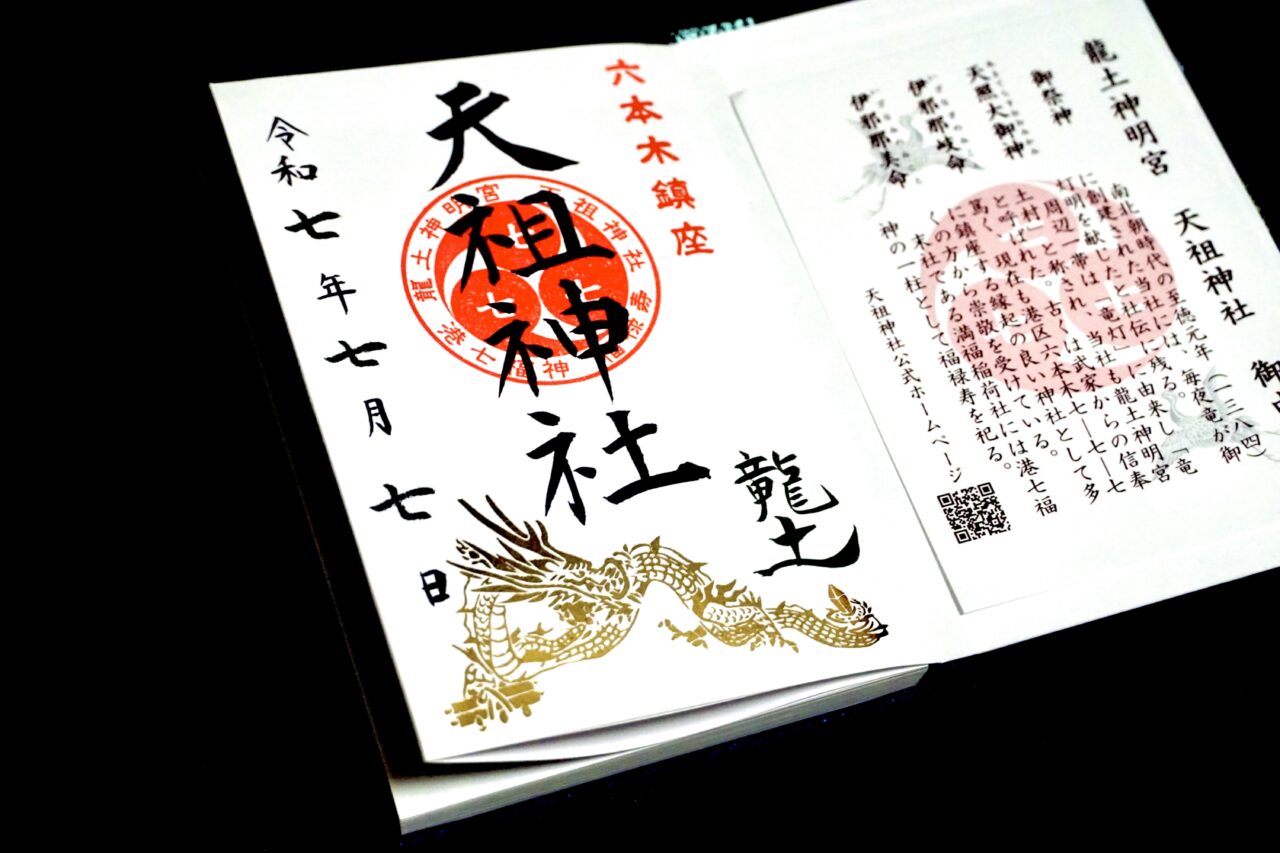 龍土神明宮 天祖神社
御祭神
天照大御神
伊邪那岐命
伊邪那美命
南北朝時代の至徳元年（一三八四）
に創建された当社には、毎夜竜が御
灯明を献じたと社伝に残る。
周辺一帯は、「竜灯」に由来し「竜
土村」と称され、当社も龍土神明宮
と呼ばれた。古くは武家からの信奉
篤く、現在も港区六本木七ー七ー七
に鎮座する縁起の良い神社として多
くの方から崇敬を受けている。
末社である満福稲荷社には港七福
神の一柱として福禄寿を祀る。
天祖神社公式ホームページ
六本木鎮座
龍土
天祖神社
龍土神明宮 天祖神社
港七福神
令和七年七月七日